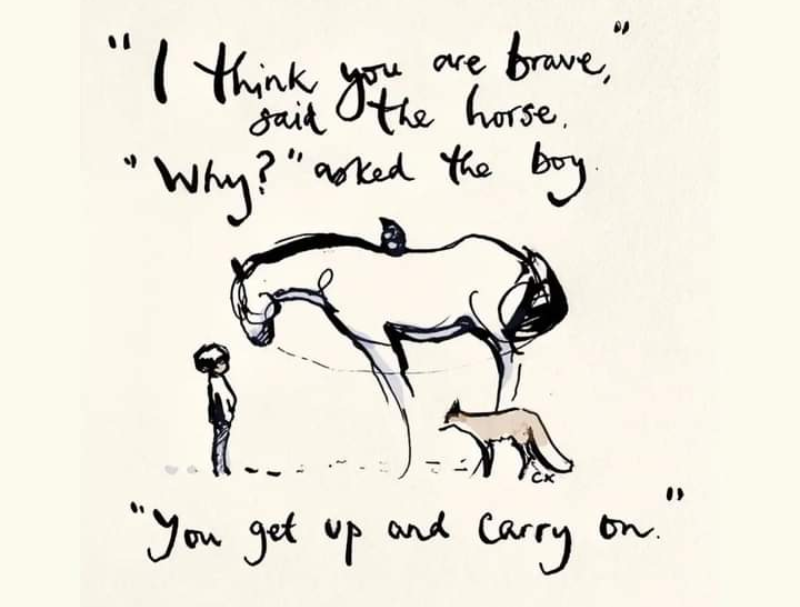 "I think you are brave,"
said the horse.
"Why?" asked the boy.
CX
"You get up and carry on."